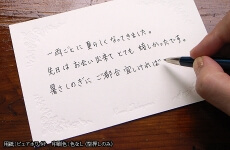 一雨ごとに夏らしくなってきました。
先日はお会い出来てとても嬉しかったです。
暑さしのぎに ご都合宜しければ
用紙:ピュアホワイト 印刷色:色なし(型押しのみ)